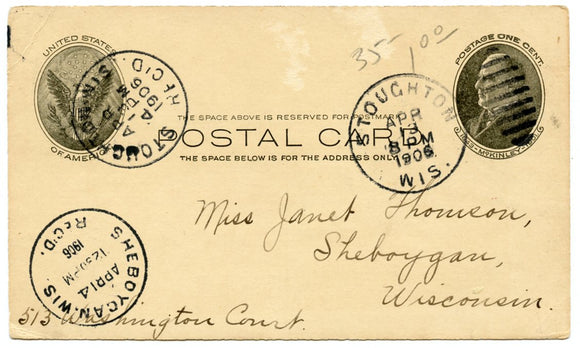 35- 1.00
UNITED STATES
OF AMERICA
POSTAGE ONE CENT.
1843-McKINLEY-1901
STOUGHTON
APR
13
8 PM
1906
WIS.
REC'D.
1906
THE SPACE ABOVE IS RESERVED FOR POSTMARK
POSTAL CARD
THE SPACE BELOW IS FOR THE ADDRESS ONLY
Miss Janet Thomson,
Sheboygan,
Wisconsin.
513 Washington Court.
SHEBOYGAN, WIS
APR 14
12 30 PM
1906
REC'D.